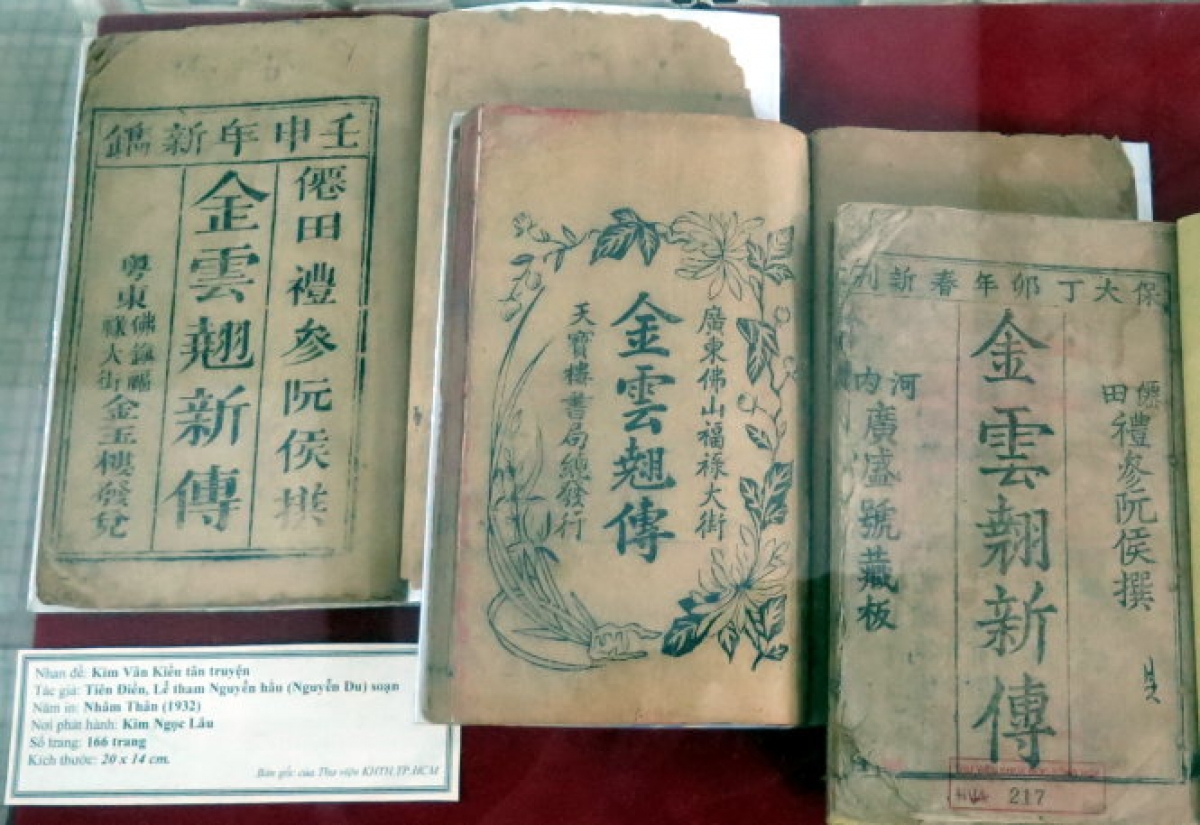 壬申年新鐫
僊田禮參阮侯撰
金雲翹新傳
粵東佛鎮福祿大街金玉樓發兌
廣東佛山福祿大街
金雲翹傳
天寶樓書局總發行
保大丁卯年春新刊
僊田禮參阮侯撰
金雲翹新傳
河內廣盛號藏板
217
Nhan đề: Kim Vân Kiều tân truyện
Tác giả: Tiên Điền, Lễ tham Nguyễn hầu (Nguyễn Du) soạn
Năm in: Nhâm Thân (1932)
Nơi phát hành: Kim Ngọc Lâu
Số trang: 166 trang
Kích thước: 20 x 14 cm.
Bản gốc của Thư viện KHTH.TP.HCM